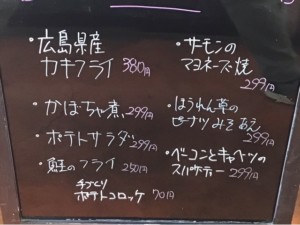 ・広島県産
カキフライ 380円
・かぼちゃ煮 299円
・ポテトサラダ 299円
・鮭のフライ 250円
手づくり
ポテトコロッケ 70円
・サーモンの
マヨネーズ焼
299円
・ほうれん草の
ピーナツみそあえ
299円
・ベーコンとキャベツの
スパゲティー 299円